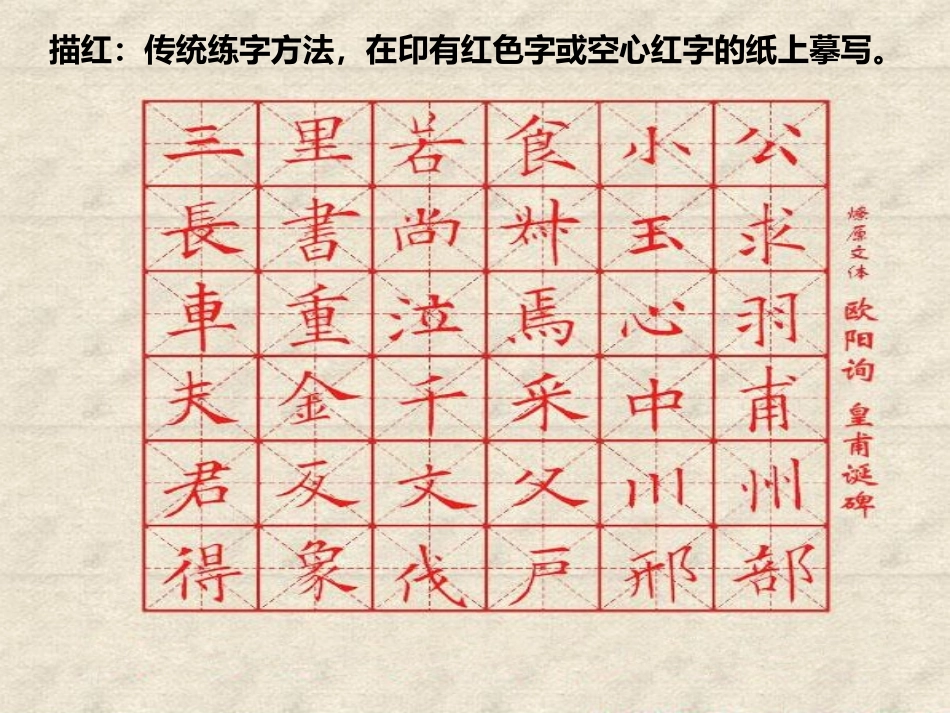 描红：传统练字方法，在印有红色字或空心红字的纸上摹写。
三里若食小公
長書尚玉求
車重泣焉心羽
夫金千采中甫
君文父川州
得象伐戸邢部
燎原文体 欧阳询 皇甫诞碑